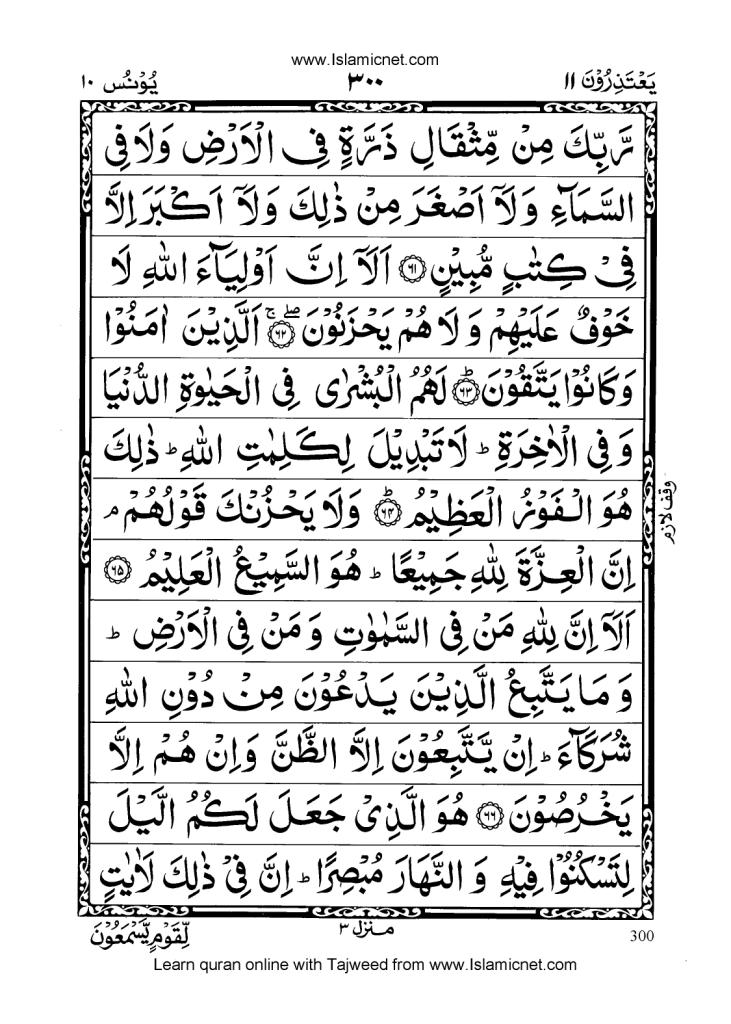 www.Islamicnet.com
يَعْتَذِرُوْنَ ١١ ٣٠٠ يُوْنُس ١٠
رَّبِّكَ مِنْ مِّثْقَالِ ذَرَّةٍ فِى الْاَرْضِ وَلَا فِى
السَّمَآءِ وَلَآ اَصْغَرَ مِنْ ذٰلِكَ وَلَآ اَكْبَرَ اِلَّا
فِىْ كِتٰبٍ مُّبِيْنٍ ﴿٦١﴾ اَلَآ اِنَّ اَوْلِيَآءَ اللّٰهِ لَا
خَوْفٌ عَلَيْهِمْ وَلَا هُمْ يَحْزَنُوْنَ ﴿٦٢﴾ۖۚ اَلَّذِيْنَ اٰمَنُوْا
وَكَانُوْا يَتَّقُوْنَ ﴿٦٣﴾ؕ لَهُمُ الْبُشْرٰى فِى الْحَيٰوةِ الدُّنْيَا
وَفِى الْاٰخِرَةِ ؕ لَا تَبْدِيْلَ لِكَلِمٰتِ اللّٰهِ ؕ ذٰلِكَ
هُوَ الْفَوْزُ الْعَظِيْمُ ﴿٦٤﴾ؕ وَلَا يَحْزُنْكَ قَوْلُهُمْ ۘ
وقف لازم
اِنَّ الْعِزَّةَ لِلّٰهِ جَمِيْعًا ؕ هُوَ السَّمِيْعُ الْعَلِيْمُ ﴿٦٥﴾
اَلَآ اِنَّ لِلّٰهِ مَنْ فِى السَّمٰوٰتِ وَمَنْ فِى الْاَرْضِ ؕ
وَمَا يَتَّبِعُ الَّذِيْنَ يَدْعُوْنَ مِنْ دُوْنِ اللّٰهِ
شُرَكَآءَ ؕ اِنْ يَّتَّبِعُوْنَ اِلَّا الظَّنَّ وَاِنْ هُمْ اِلَّا
يَخْرُصُوْنَ ﴿٦٦﴾ هُوَ الَّذِىْ جَعَلَ لَكُمُ الَّيْلَ
لِتَسْكُنُوْا فِيْهِ وَالنَّهَارَ مُبْصِرًا ؕ اِنَّ فِىْ ذٰلِكَ لَاٰيٰتٍ
300 منزل ٣ لِّقَوْمٍ يَّسْمَعُوْنَ
Learn quran online with Tajweed from www.Islamicnet.com